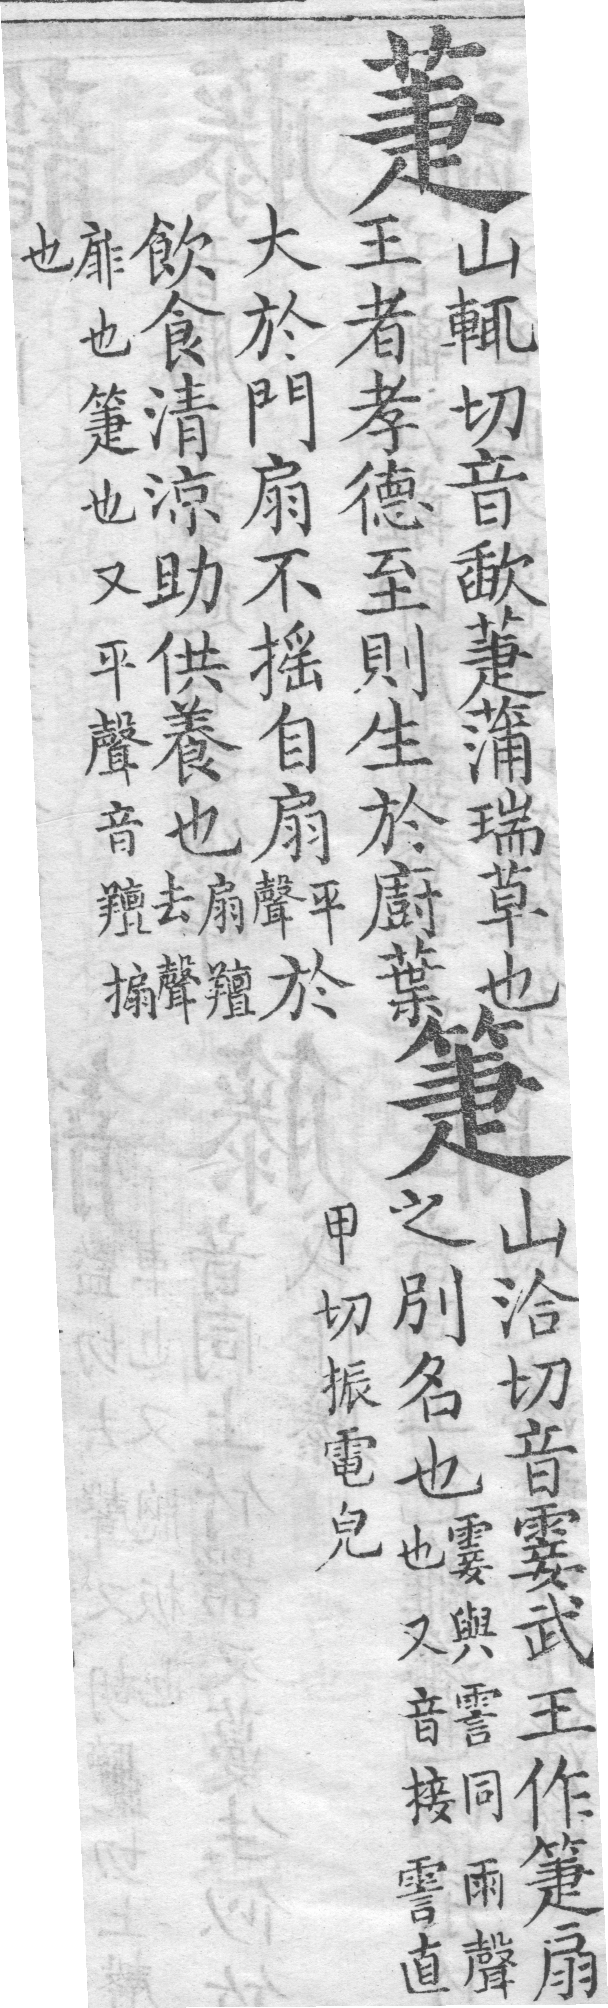 萐
山輒切音歃萐蒲瑞草也
王者孝德至則生於廚葉
大於門扇不搖自扇平聲於
飲食清凉助供養也扇羶去聲
扉也箑也又平聲音羶搧
也
箑
山洽切音霎武王作箑扇
之別名也霎與霅同雨聲
也又音接霅直
甲切振電皃